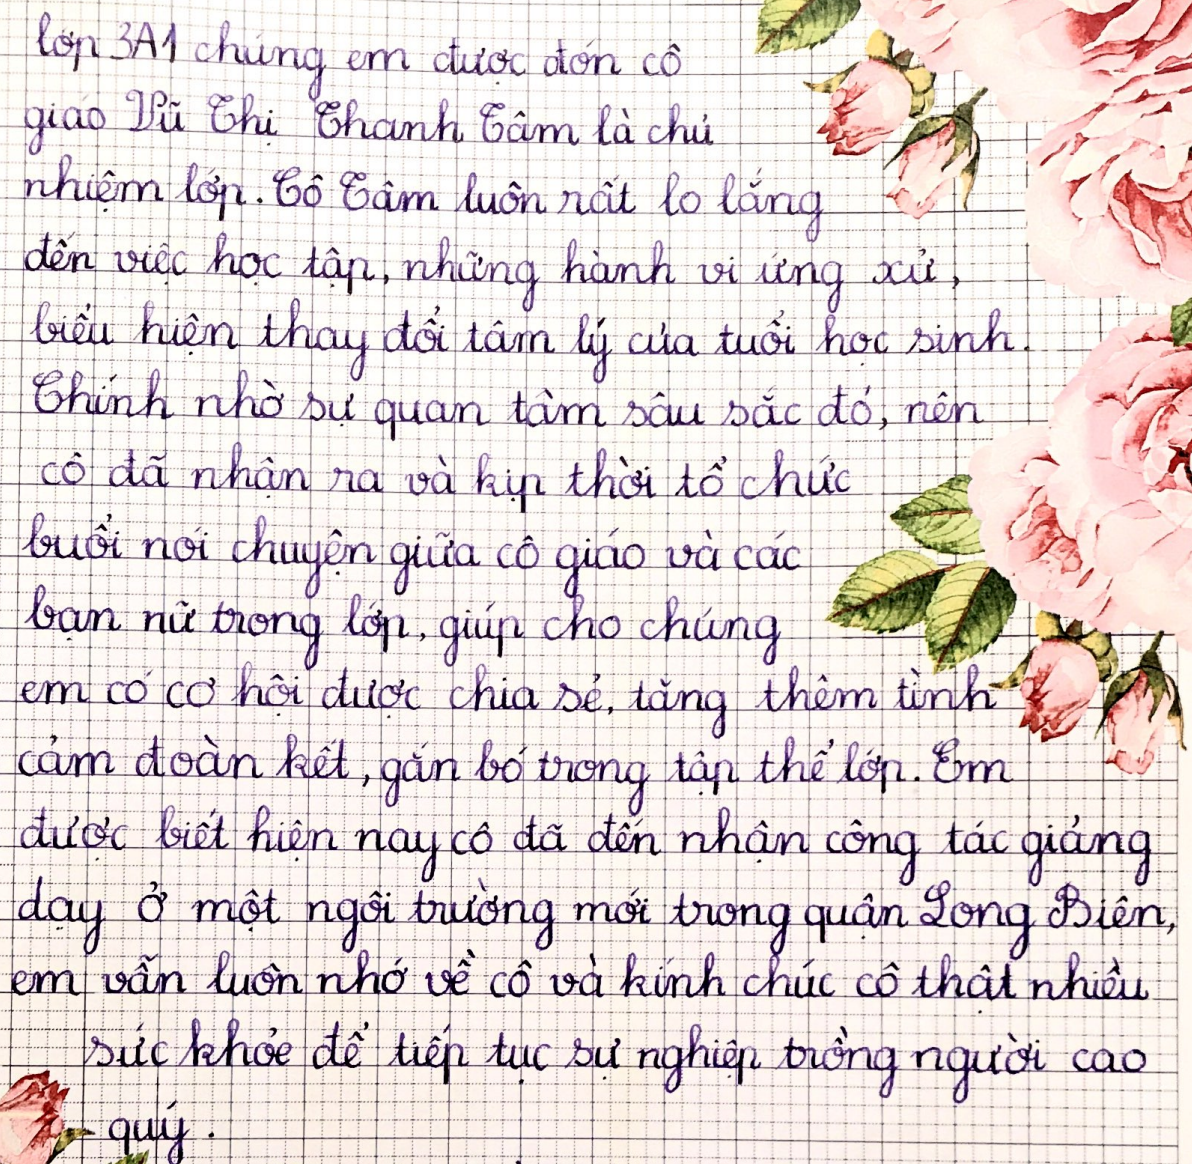 lớp 3A1 chúng em được đón cô
giáo Vũ Thị Thanh Tâm là chủ
nhiệm lớp. Cô Tâm luôn rất lo lắng
đến việc học tập, những hành vi ứng xử,
biểu hiện thay đổi tâm lý của tuổi học sinh.
Chính nhờ sự quan tâm sâu sắc đó, nên
cô đã nhận ra và kịp thời tổ chức
buổi nói chuyện giữa cô giáo và các
bạn nữ trong lớp, giúp cho chúng
em có cơ hội được chia sẻ, tăng thêm tình
cảm đoàn kết, gắn bó trong tập thể lớp. Em
được biết hiện nay cô đã đến nhận công tác giảng
dạy ở một ngôi trường mới trong quận Long Biên,
em vẫn luôn nhớ về cô và kính chúc cô thật nhiều
sức khỏe để tiếp tục sự nghiệp trồng người cao
quý.